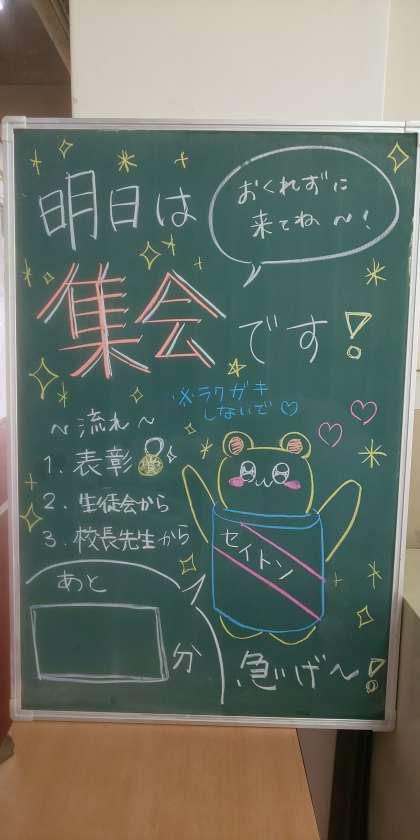 明日は
おくれずに
来てね〜!
集会です!
※ラクガキ
しないで♡
〜流れ〜
1. 表彰
2. 生徒会から
3. 校長先生から
セイトン
あと
分
急いげ〜!